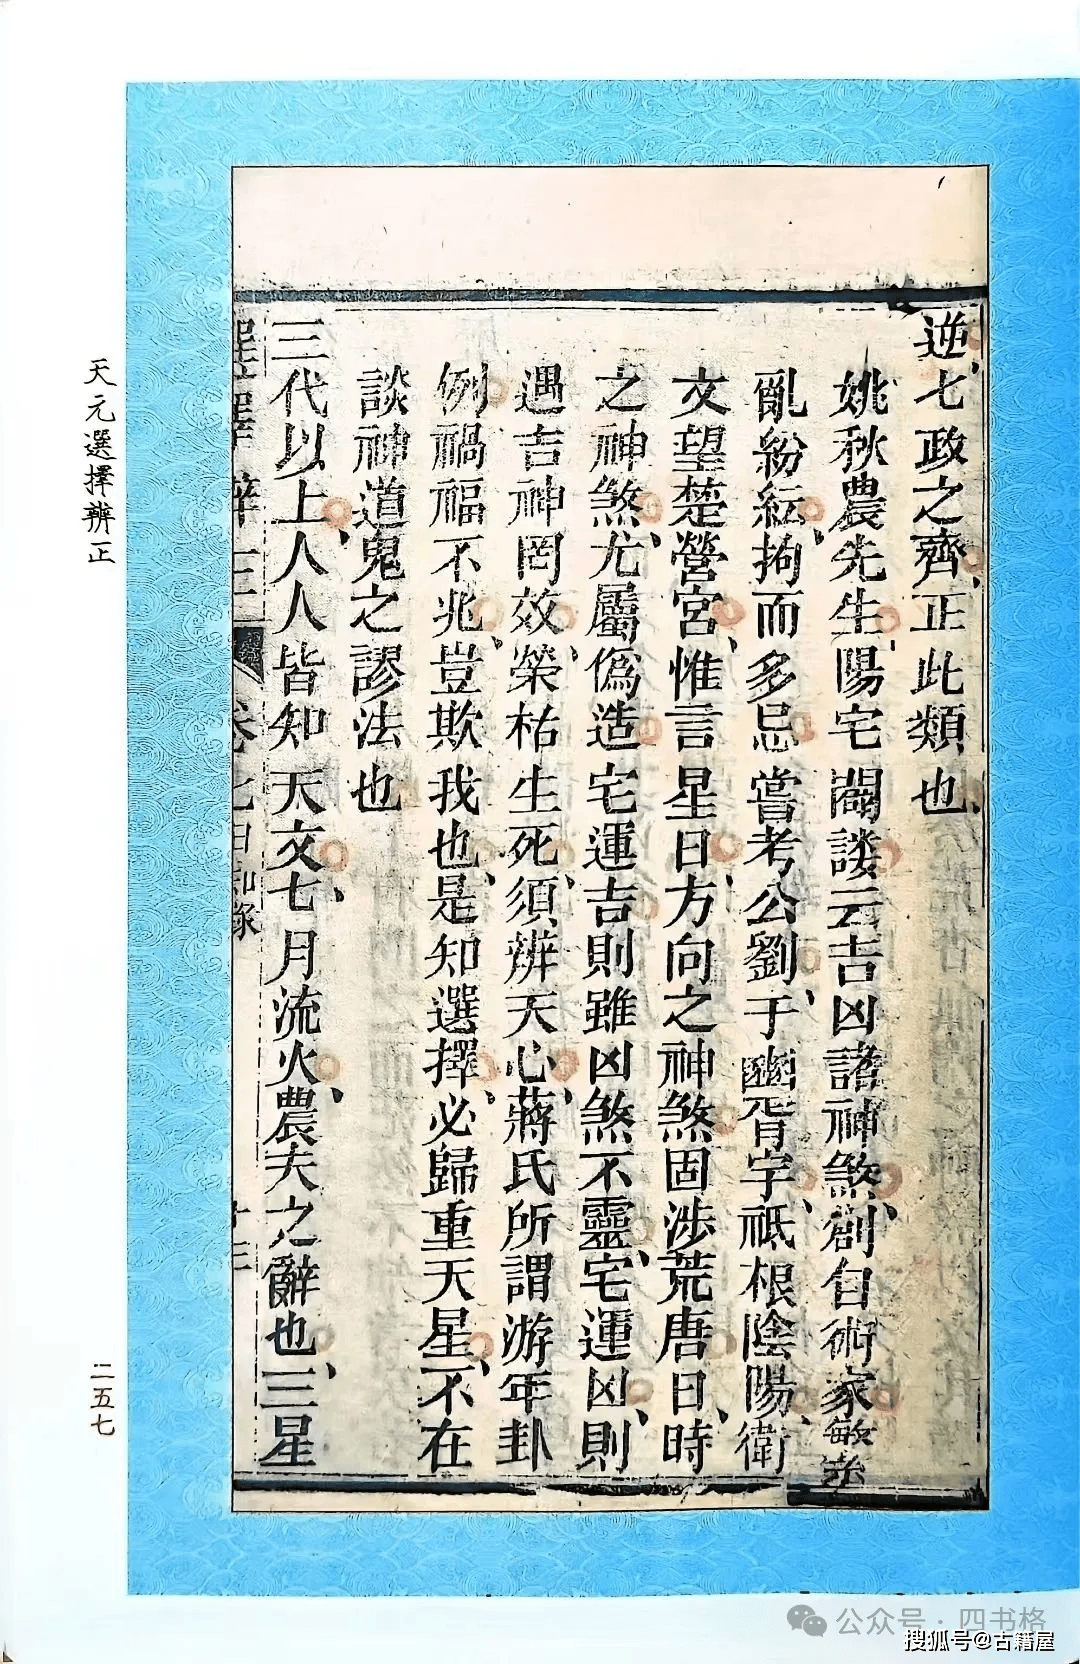 逆七政之齊正此類也
姚秋農先生陽宅闢謬云吉凶諸神煞創自術家繁
亂紛紜拘而多忌嘗考公劉于豳胥宇祗根陰陽衛
文望楚營宮惟言星日方向之神煞固涉荒唐日時
之神煞尤屬僞造宅運吉則雖凶煞不靈宅運凶則
遇吉神罔效榮枯生死須辨天心蔣氏所謂游年卦
例禍福不兆豈欺我也是知選擇必歸重天星不在
談神道鬼之謬法也
三代以上人人皆知天文七月流火農夫之辭也三星
選擇辨正 卷七日知錄 十三
天元選擇辨正
二五七
公众号·四书格
搜狐号@古籍屋